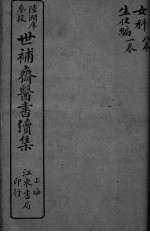 女科八卷
生化編一卷
陸潤庠
參校
世補齋醫書續集
上海
江東書局
印行